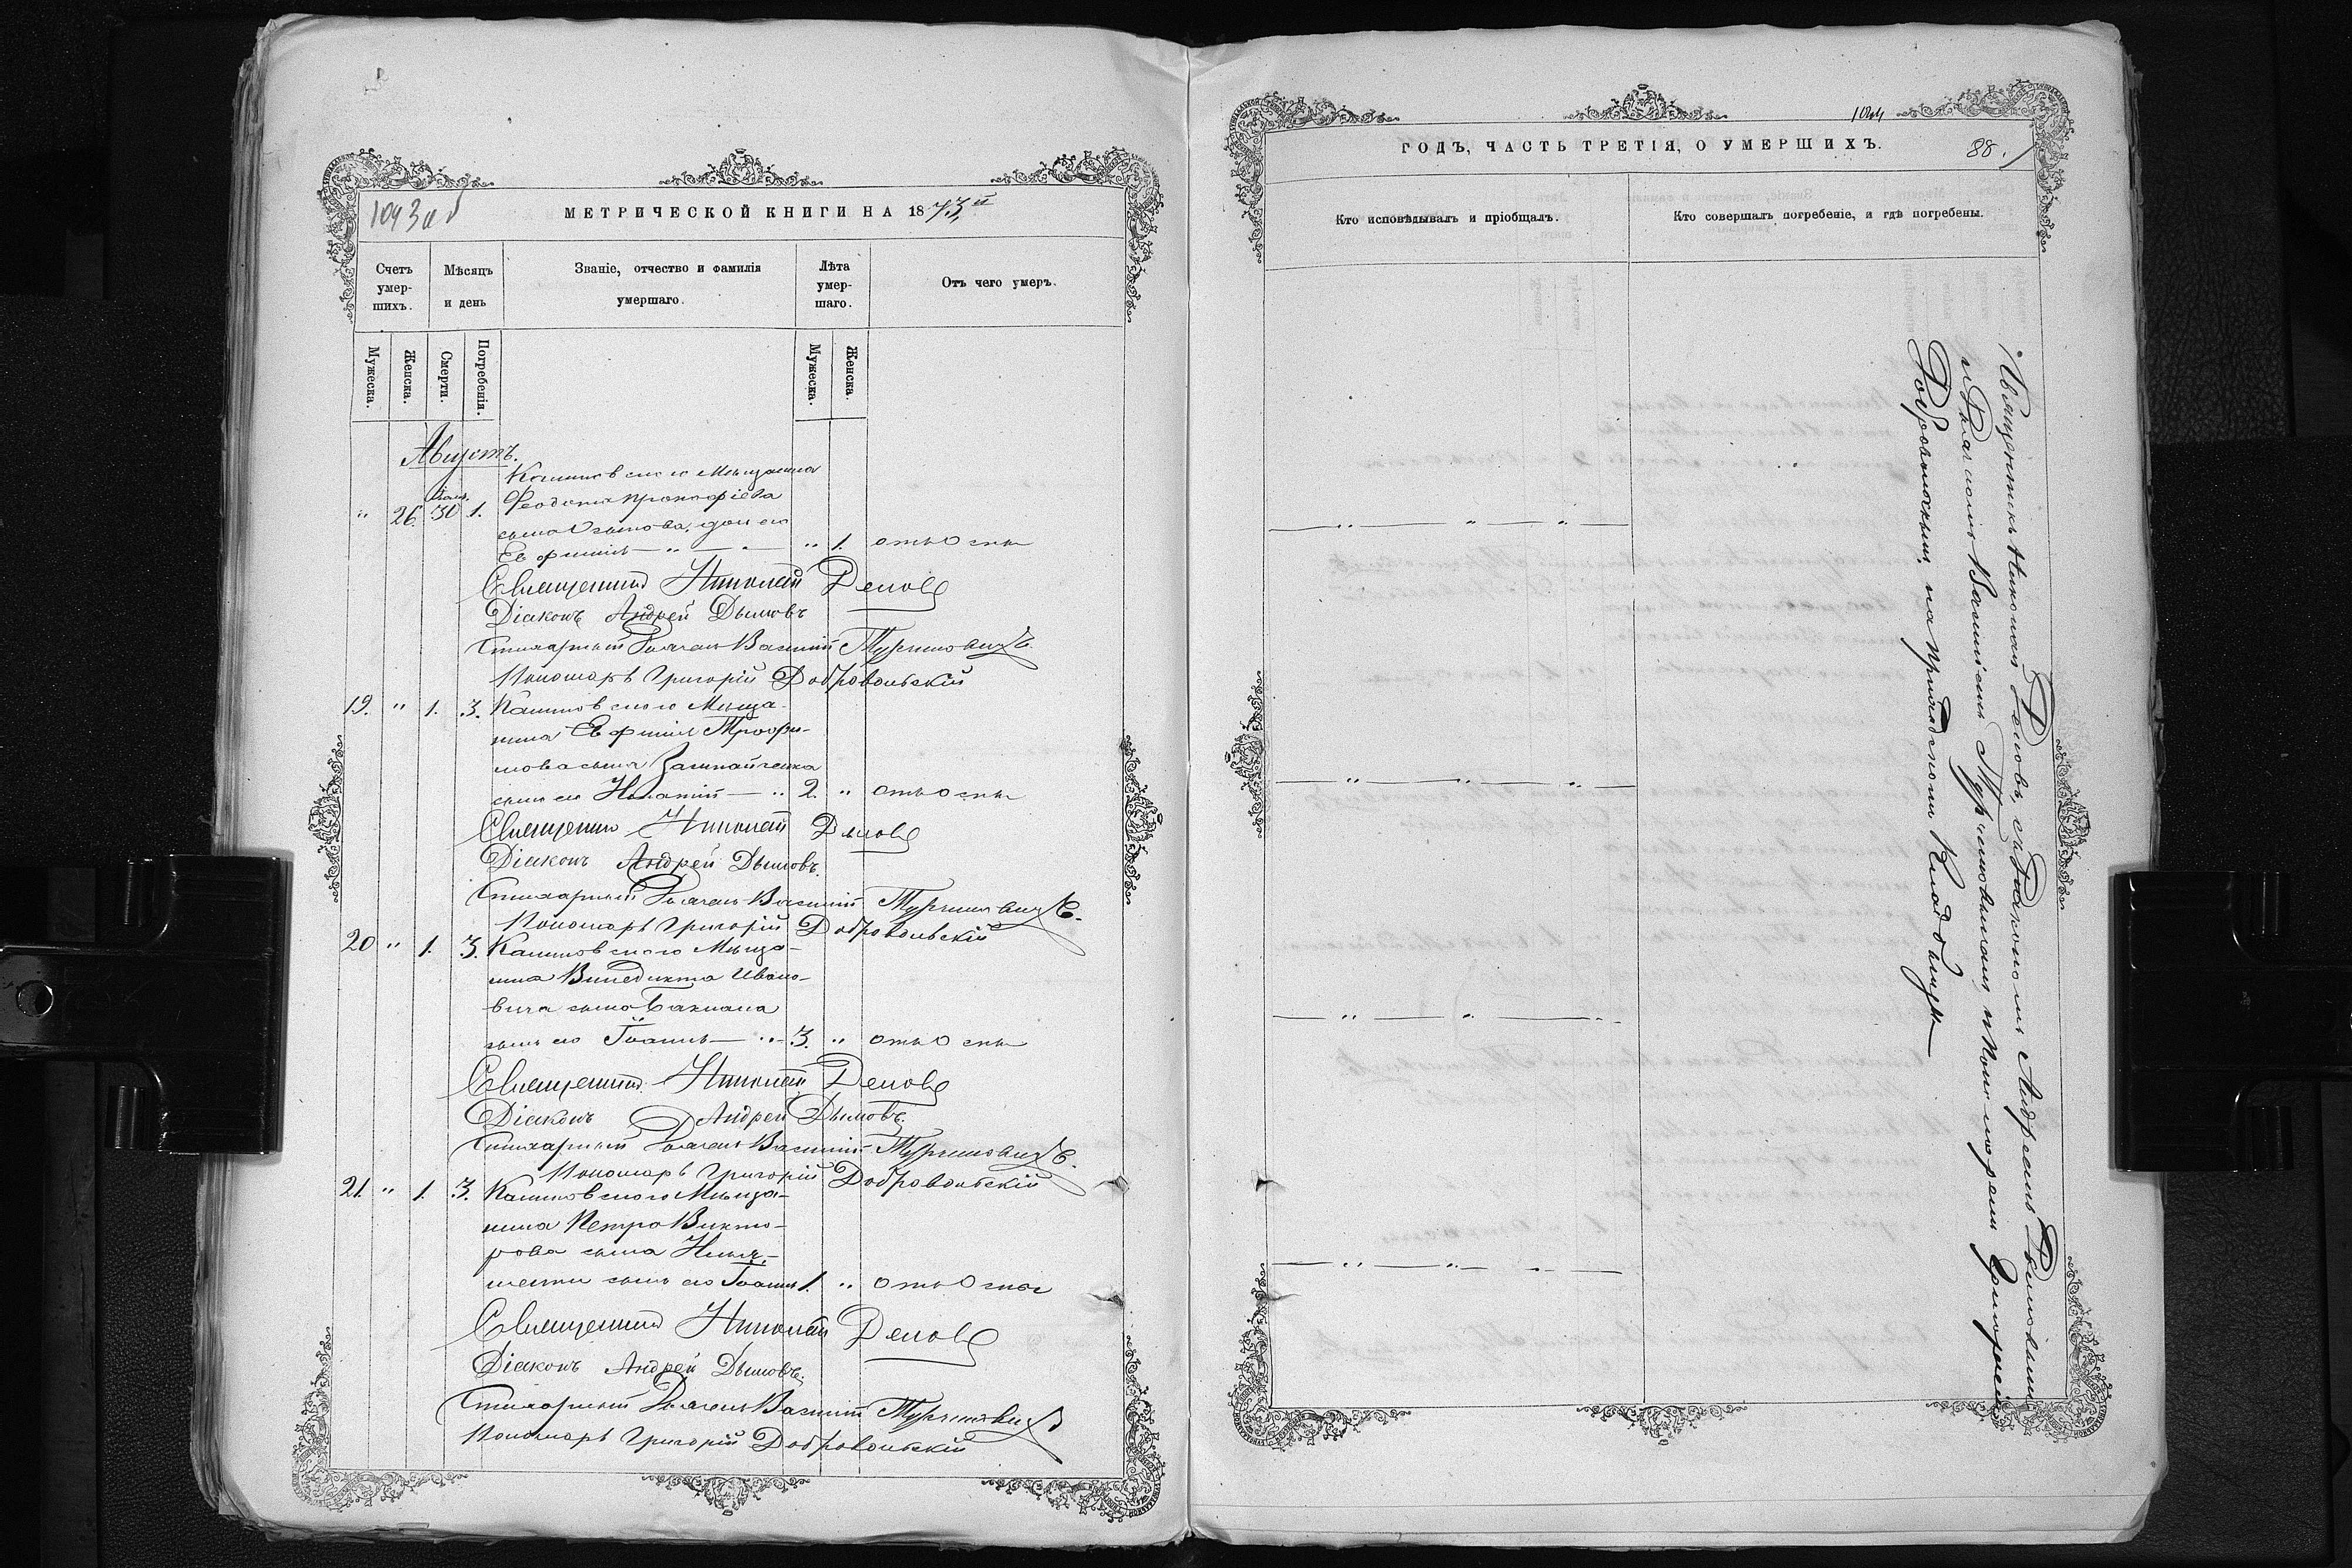 1093 об
МЕТРИЧЕСКОЙ КНИГИ НА 1873й
Счетъ умер-шихъ.
Мѣсяцъ и день
Званіе, отчество и фамилія умершаго.
Лѣта умер-шаго.
Отъ чего умеръ.
Мужеска.
Женска.
Смерти.
Погребенія.
Мужеска.
Женска.
Августъ.
Мѣщанина
" 26. 30 1. Феодота Прокофіева
сына дочь его
Евфимія — " — " — " 1. отъ Оспы
Священникъ Николай
Діаконъ Андрей Дымовъ
Стихарный Дьячекъ Василій
Пономарь Григорій Добровольскій
19. " 1. 3. Мѣща-
нина Евфимія Трофи-
мова сына
сынъ его Игнатій — " 2. " отъ Оспы
Священникъ Николай
Діаконъ Андрей Дымовъ.
Стихарный Дьячекъ Василій
Пономарь Григорій Добровольскій
20 " 1. 3. Мѣща-
нина Винедикта Ивано-
вича сына
сынъ его Іоаннъ — " 3. " отъ Оспы
Священникъ Николай
Діаконъ Андрей Дымовъ.
Стихарный Дьячекъ Василій
Пономарь Григорій Добровольскій
21. " 1. 3. Мѣща-
нина Петра Викто-
рова сына
сынъ его Іоаннъ 1. " отъ Оспы
Священникъ Николай
Діаконъ Андрей Дымовъ.
Стихарный Дьячекъ Василій
Пономарь Григорій Добровольскій
1044
ГОДЪ, ЧАСТЬ ТРЕТІЯ, О УМЕРШИХЪ.
88.
Кто исповѣдывалъ и пріобщалъ.
Кто совершалъ погребеніе, и гдѣ погребены.
Священникъ Николай съ Діакономъ Андреемъ Дымовымъ
и Дьячкомъ Василіемъ и Пономаремъ Григоріемъ
Добровольскимъ, на приходскомъ Кладбищѣ